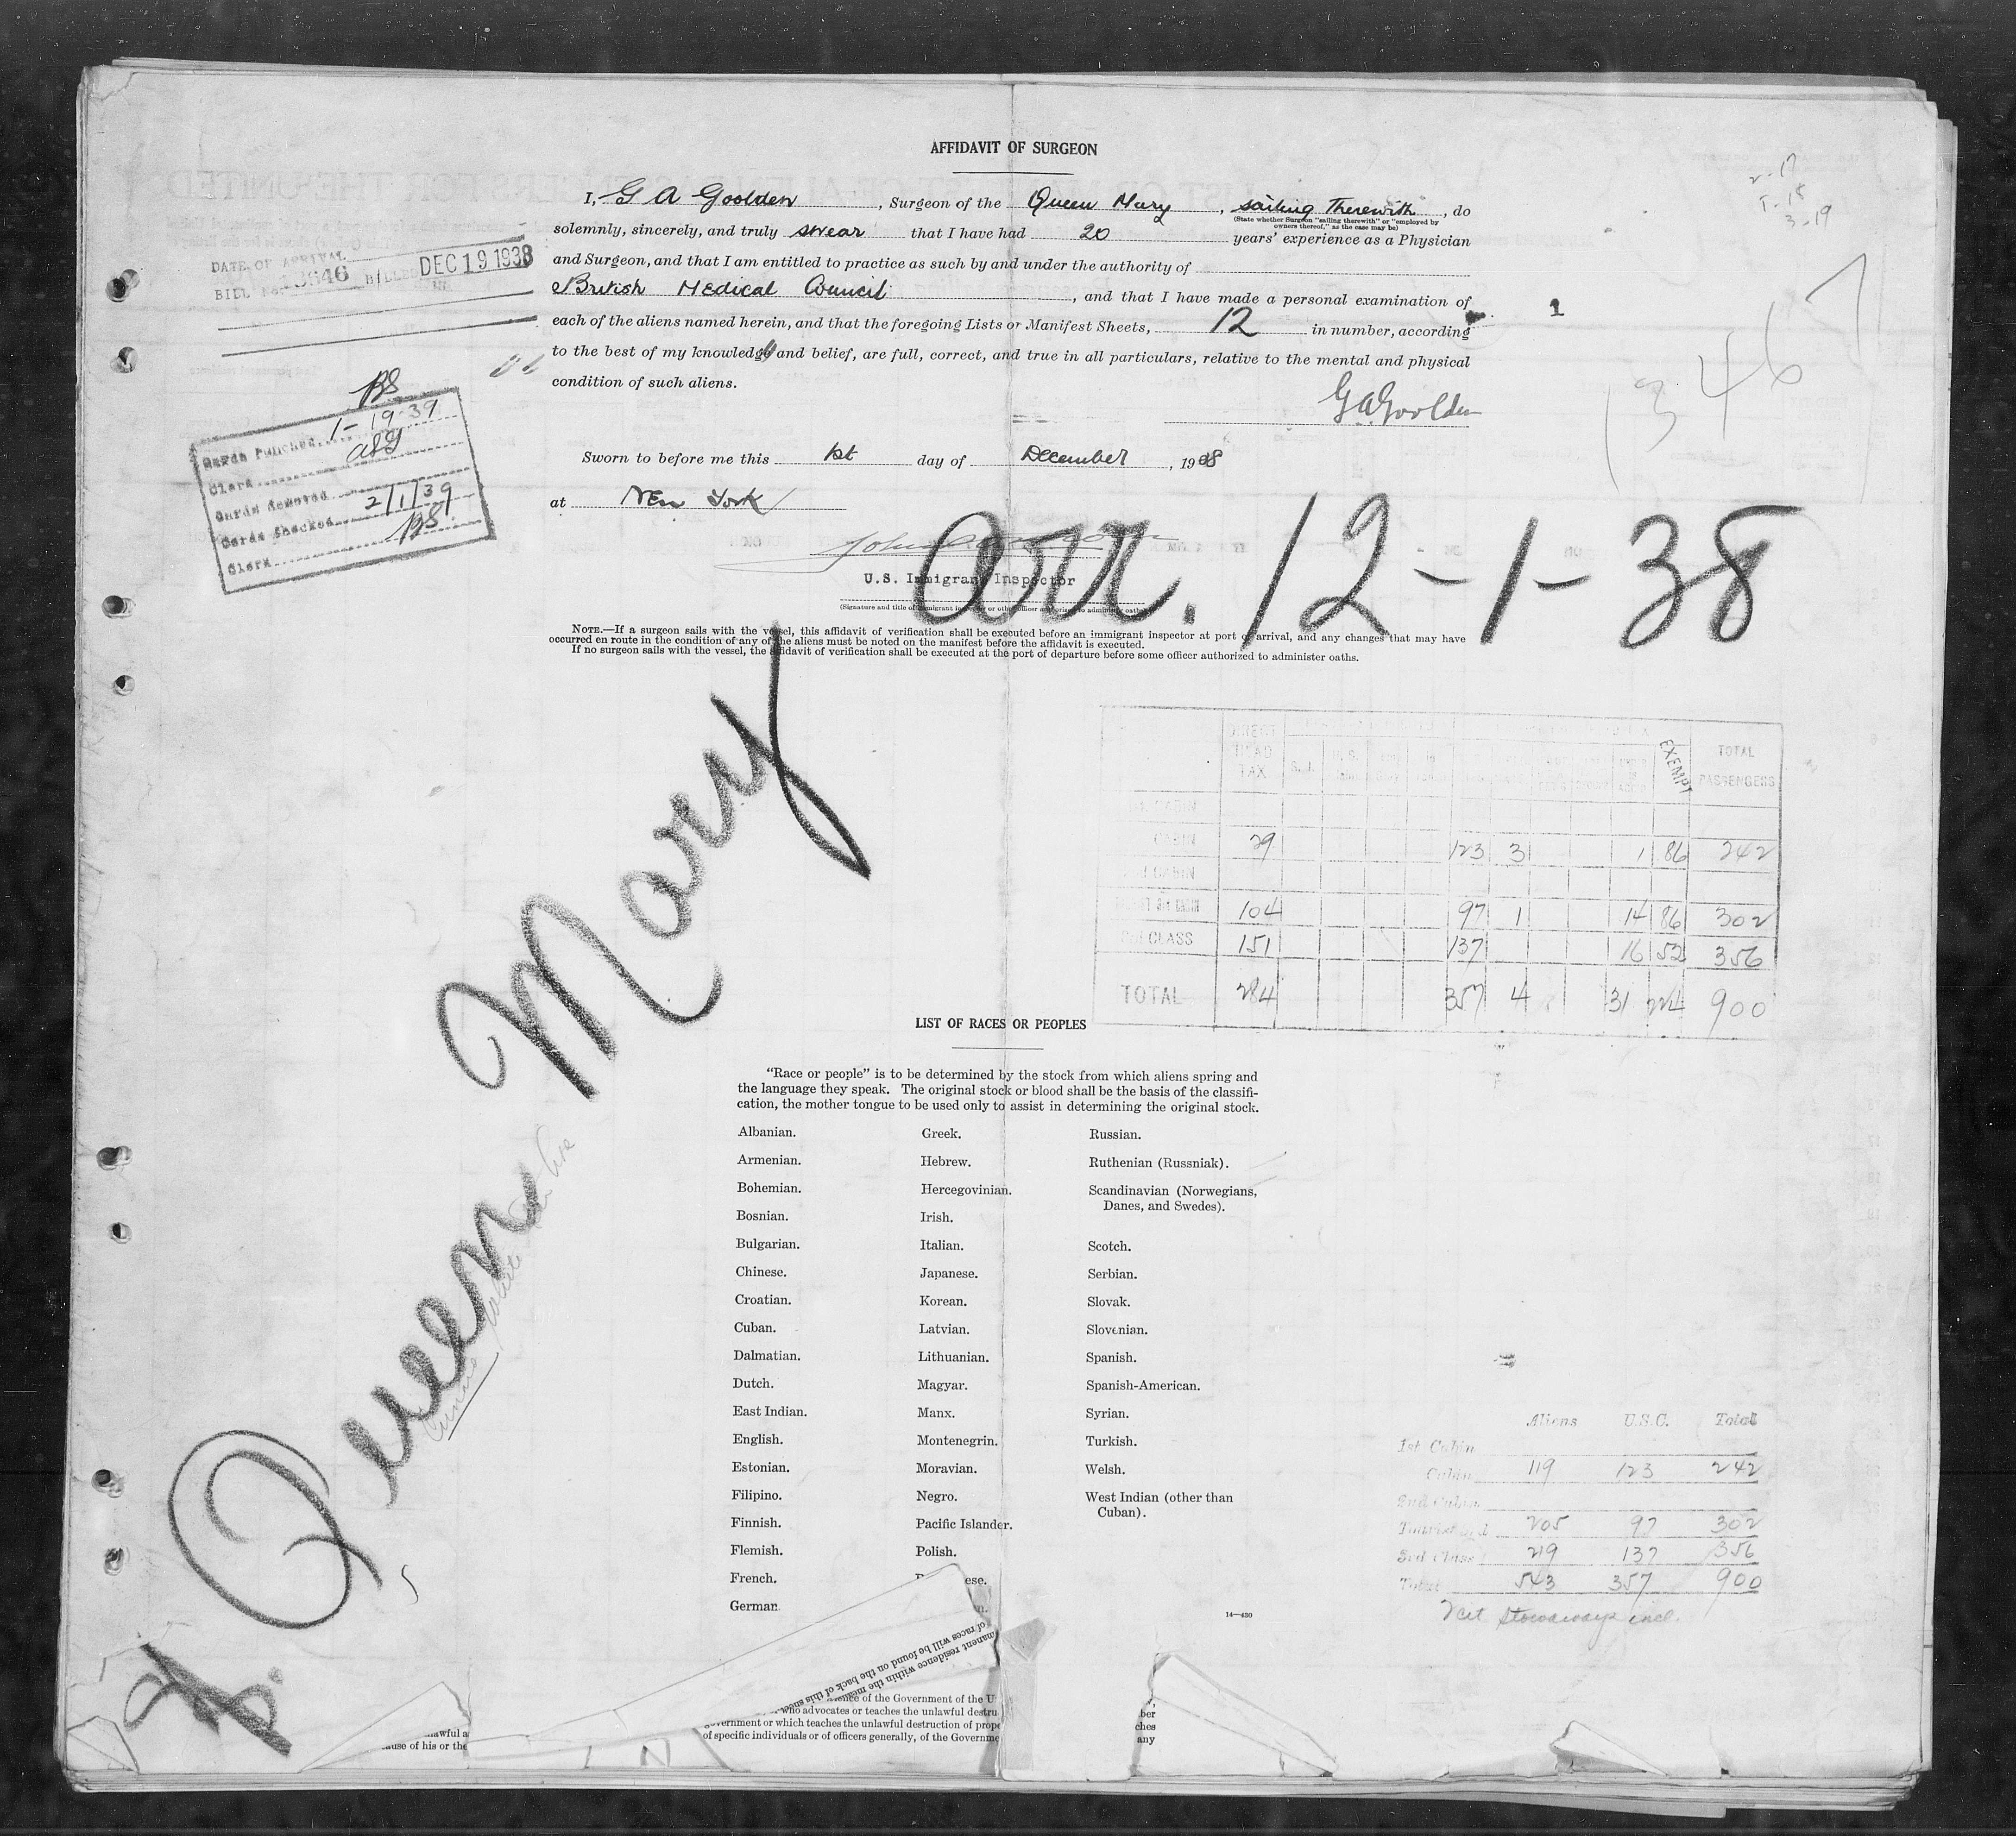 AFFIDAVIT OF SURGEON
I, G A Goolden, Surgeon of the Queen Mary, sailing Therewith, do
(State whether Surgeon "sailing therewith" or "employed by
owners thereof," as the case may be)
solemnly, sincerely, and truly swear that I have had 20 years' experience as a Physician
and Surgeon, and that I am entitled to practice as such by and under the authority of
British Medical Council, and that I have made a personal examination of
each of the aliens named herein, and that the foregoing Lists or Manifest Sheets, 12 in number, according
to the best of my knowledge and belief, are full, correct, and true in all particulars, relative to the mental and physical
condition of such aliens.
GAGoolden
Sworn to before me this 1st day of December, 1938
at New York
John
U.S. Immigrant Inspector
(Signature and title of immigrant inspector or other officer authorized to administer oaths)
NOTE.—If a surgeon sails with the vessel, this affidavit of verification shall be executed before an immigrant inspector at port of arrival, and any changes that may have
occurred en route in the condition of any of the aliens must be noted on the manifest before the affidavit is executed.
If no surgeon sails with the vessel, the affidavit of verification shall be executed at the port of departure before some officer authorized to administer oaths.
DATE OF ARRIVAL
BILL No. 43646 BILLED DEC 19 1938
BS
Cards Punched 1-19-39
Clerk
Cards Removed
Cards Checked 2/1/39
Clerk BS
2-17
1-18
3-19
1
13467
arr. 12-1-38
Queen Mary
Cunard White Star Line
HEAD TAX EXEMPT TOTAL PASSENGERS
CABIN 29 123 3 1 86 242
104 97 1 14 86 302
CLASS 151 137 16 52 356
TOTAL 284 357 4 31 224 900
LIST OF RACES OR PEOPLES
"Race or people" is to be determined by the stock from which aliens spring and
the language they speak. The original stock or blood shall be the basis of the classifi-
cation, the mother tongue to be used only to assist in determining the original stock.
Albanian.
Armenian.
Bohemian.
Bosnian.
Bulgarian.
Chinese.
Croatian.
Cuban.
Dalmatian.
Dutch.
East Indian.
English.
Estonian.
Filipino.
Finnish.
Flemish.
French.
German
Greek.
Hebrew.
Hercegovinian.
Irish.
Italian.
Japanese.
Korean.
Latvian.
Lithuanian.
Magyar.
Manx.
Montenegrin.
Moravian.
Negro.
Pacific Islander.
Polish.
ese.
n.
Russian.
Ruthenian (Russniak).
Scandinavian (Norwegians,
Danes, and Swedes).
Scotch.
Serbian.
Slovak.
Slovenian.
Spanish.
Spanish-American.
Syrian.
Turkish.
Welsh.
West Indian (other than
Cuban).
14—430
Aliens U.S.C. Total
1st Cabin
Cabin 119 123 242
2nd Cabin
Tourist 3rd 205 97 302
3rd Class 219 137 356
Total 543 357 900
Not Stowaways incl.
of races will be found on the back of this sheet
manent residence within the mean
ence of the Government of the U
who advocates or teaches the unlawful destru
government or which teaches the unlawful destruction of prope
of specific individuals or of officers generally, of the Governme
awful a
ause of his or the
ber
ches
any